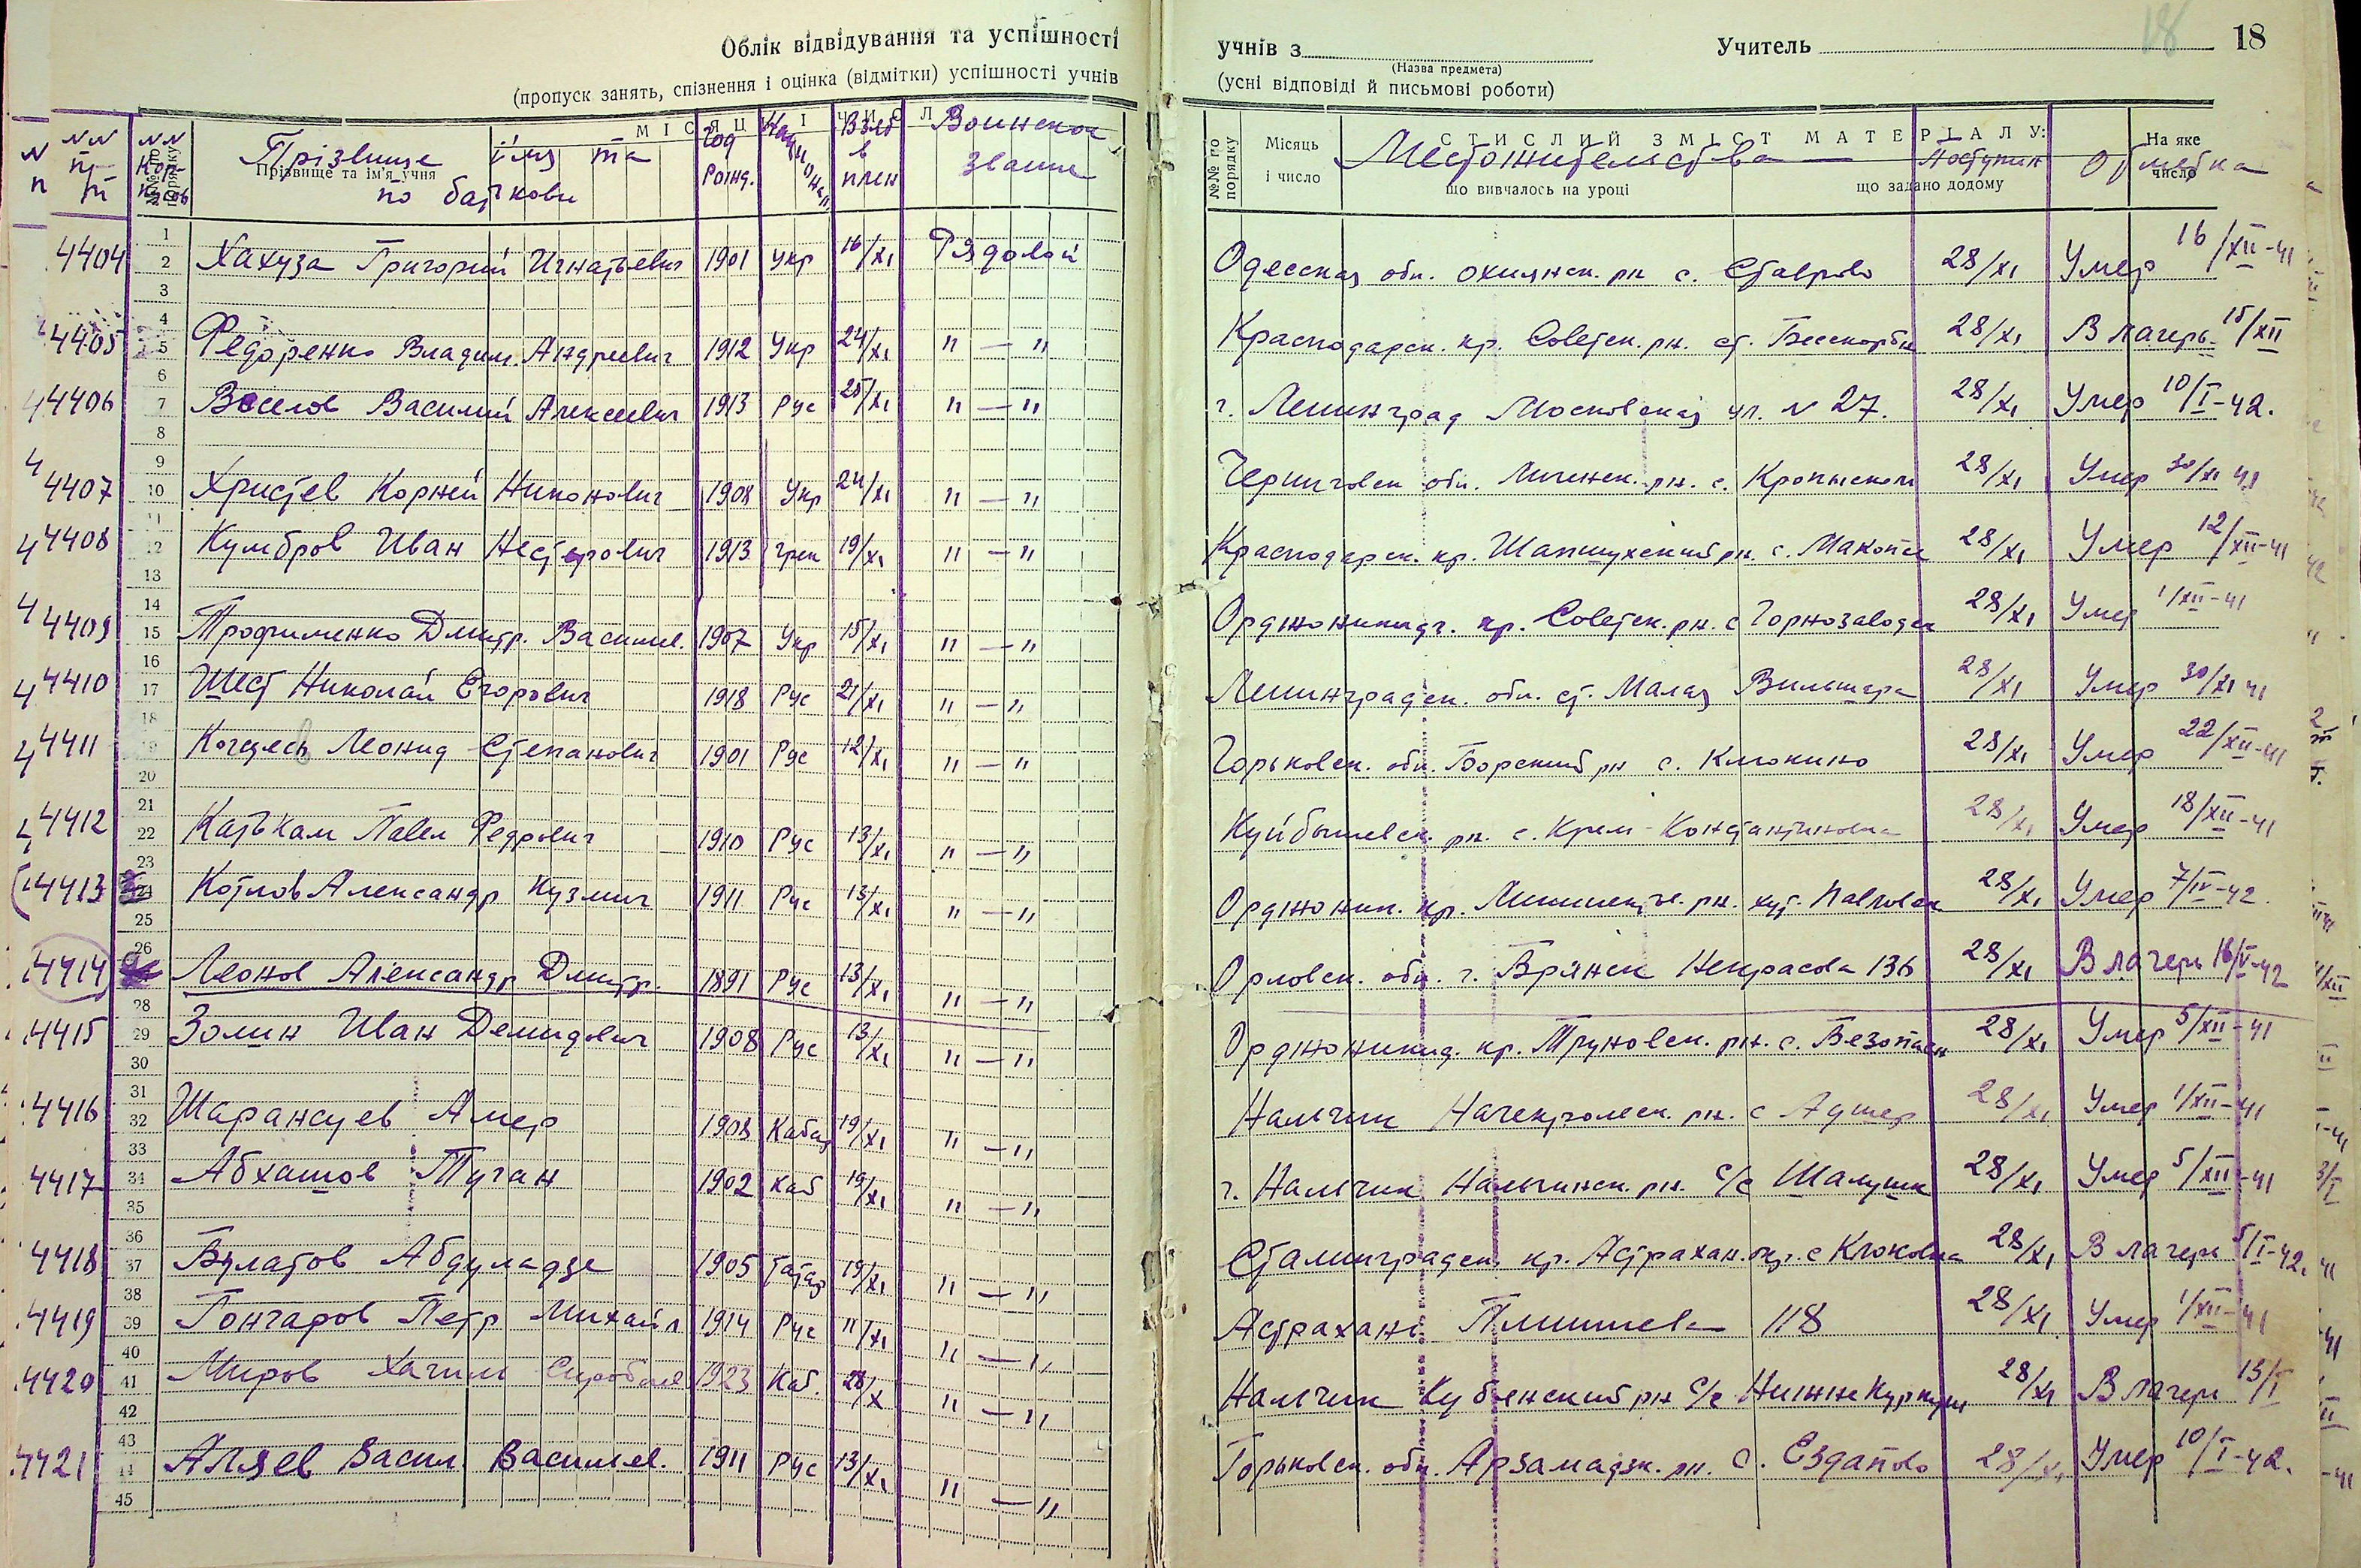 Облік відвідування та успішності учнів з Учитель 18 18
(Назва предмета)
(пропуск занять, спізнення і оцінка (відмітки) успішності учнів (усні відповіді й письмові роботи)
МІСЯЦІ ЧИСЛ
СТИСЛИЙ ЗМІСТ МАТЕРІАЛУ:
№№ по порядку Прізвище та ім'я учня
№№ по порядку Місяць і число що вивчалось на уроці що задано додому На яке число
Прізвище імя та по баткови Год рожд. Взят в плен Воинское звание Местожительства Поступил Отметка
4404 Хахуза Григорий Игнатьевич 1901 Укр 16/XI Рядовой Одесская обл. охцянск. рн с. Ставрово 28/XI Умер 16/XII-41
4405 Федоренко Владим. Андреевич 1912 Укр 24/XI "—" Краснодарск. кр. Советск. рн. ст. Бесскорбн 28/XI В лагерь 15/XII
4406 Веселов Василий Алексеевич 1913 Рус 25/XI "—" г. Ленинград Московская ул. N 27. 28/XI Умер 10/I-42.
4407 Христев Корней Никонович 1908 Укр 24/XI "—" Черниговск обл. рн. с. 28/XI Умер 30/XI 41
4408 Кумбров Иван Нестерович 1913 грек 19/XI "—" Краснодарск. кр. Шапшухский рн. с. Макопсе 28/XI Умер 12/XII-41
4409 Трофименко Дмитр. Василев. 1907 Укр 15/XI "—" Орджоникидз. кр. Советск. рн. с Горнозаводск 28/XI Умер 1/XII-41
4410 Шест Николай Егорович 1918 Рус 21/XI "—" Ленинградск. обл. ст. Малая Вильшера 28/XI Умер 30/XI 41
4411 Леонид Степанович 1901 Рус 12/XI "—" Горьковск. обл. Борский рн с. Клюкино 28/XI Умер 22/XII-41
4412 Катькам Павел Федрович 1910 Рус 13/XI "—" Куйбышевск. рн. с. Крем-Константиновка 28/XI Умер 18/XII-41
4413 Котлов Александр Кузмич 1911 Рус 13/XI "—" Орджоник. кр. рн. хут. Павловск 28/XI Умер 7/IV-42.
4414 Леонов Александр Дмитр. 1891 Рус 13/XI "—" Орловск. обл. г. Брянск Некрасова 136 28/XI В лагерь 16/V-42
4415 Золин Иван Демидович 1908 Рус 13/XI "—" Орджоникид. кр. Труновск. рн. с. Безопасн 28/XI Умер 5/XII-41
4416 Шарансуев Амер 1908 Кабад 19/XI "—" Нальчик рн. с 28/XI Умер 1/XII-41
4417 Абхашов Туган 1902 Каб 19/XI "—" г. Нальчик Нальчинск. рн. с/с Шалушк 28/XI Умер 5/XII-41
4418 Булатов Абдуладзе 1905 татар 19/XI "—" Сталинградск. кр. Астрахан. окр. с 28/XI В лагерь 5/I-42.
4419 Гончаров Петр Михайл 1914 Рус 11/XI "—" Астрахань 118 28/XI Умер 1/XII-41
4420 Миров Хачим 1923 Каб. 28/X "—" Нальчик Кубенский рн с/с Нижне Куркуж 28/XI В лагерь 13/I
4421 Аляев Васил. Василев. 1911 Рус 13/XI "—" Горьковск. обл. Арзамадзк. рн. с. Ездапово 28/XI Умер 10/I-42.